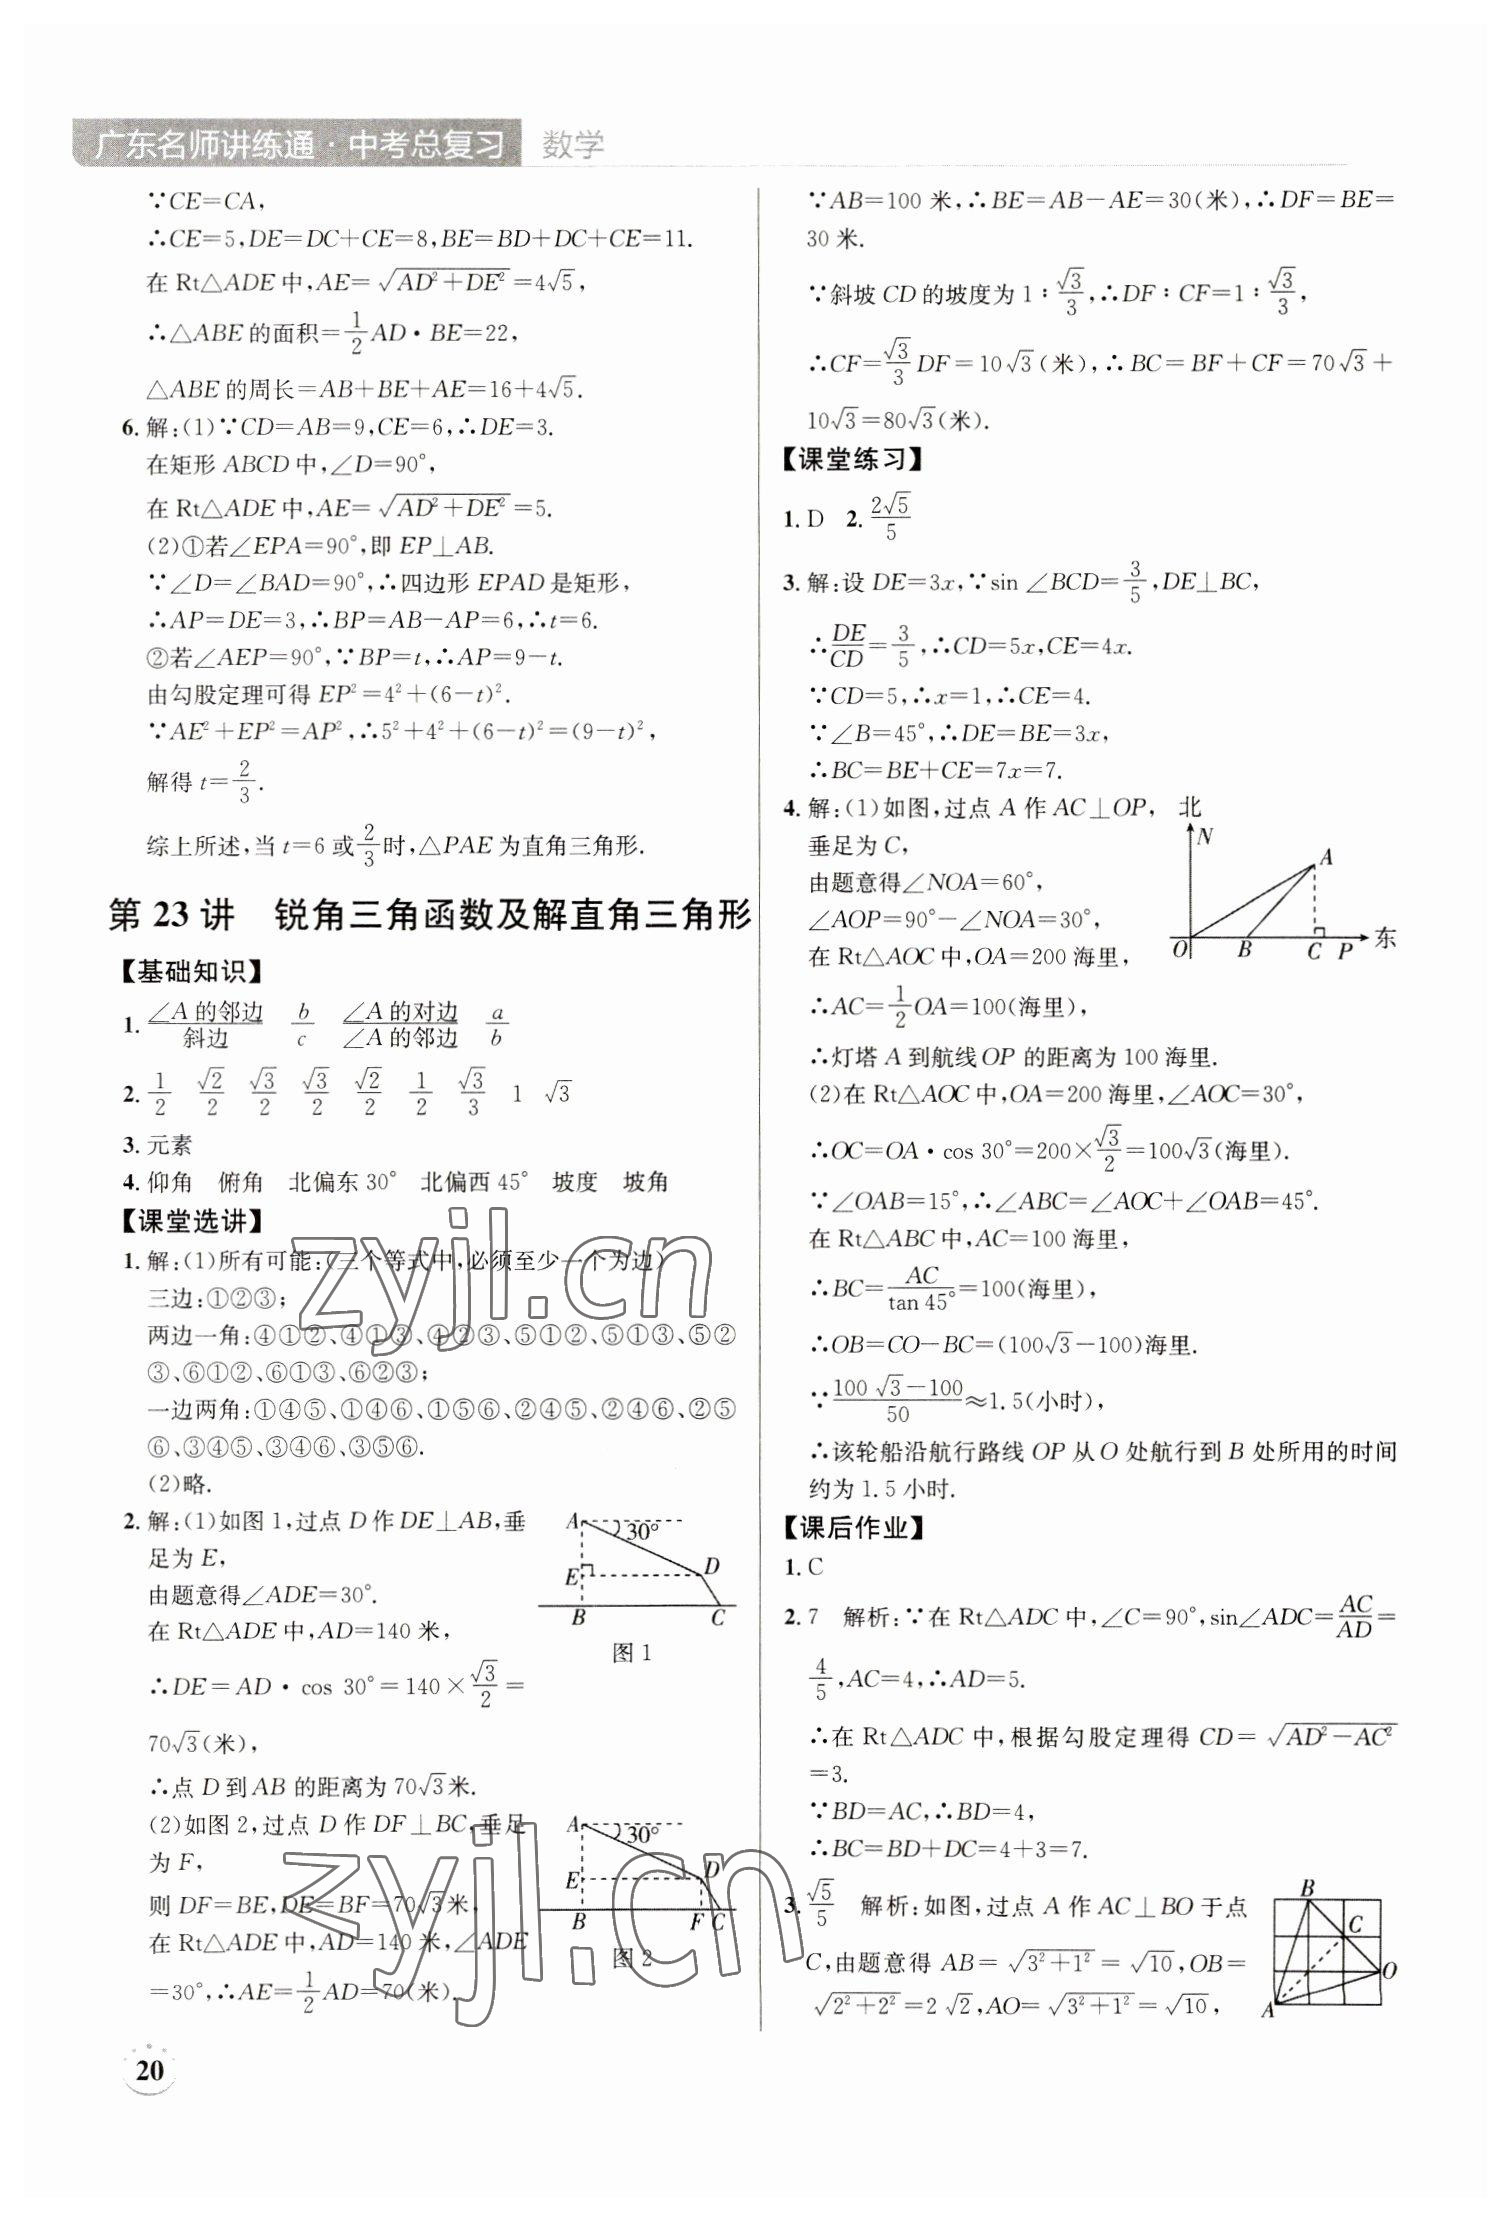 广东名师讲练通·中考总复习 数学
∵CE=CA,
∴CE=5,DE=DC+CE=8,BE=BD+DC+CE=11.
在 Rt△ADE 中,AE=√(AD²+DE²)=4√5,
∴△ABE 的面积=1/2 AD·BE=22,
△ABE 的周长=AB+BE+AE=16+4√5.
6. 解:(1)∵CD=AB=9,CE=6,∴DE=3.
在矩形 ABCD 中,∠D=90°,
在 Rt△ADE 中,AE=√(AD²+DE²)=5.
(2)①若∠EPA=90°,即 EP⊥AB.
∵∠D=∠BAD=90°,∴四边形 EPAD 是矩形,
∴AP=DE=3,∴BP=AB-AP=6,∴t=6.
②若∠AEP=90°,∵BP=t,∴AP=9-t.
由勾股定理可得 EP²=4²+(6-t)².
∵AE²+EP²=AP²,∴5²+4²+(6-t)²=(9-t)²,
解得 t=2/3.
综上所述,当 t=6 或2/3时,△PAE 为直角三角形.
第 23 讲 锐角三角函数及解直角三角形
【基础知识】
1. ∠A 的邻边/斜边 b/c ∠A 的对边/∠A 的邻边 a/b
2. 1/2 √2/2 √3/2 √3/2 √2/2 1/2 √3/3 1 √3
3. 元素
4. 仰角 俯角 北偏东 30° 北偏西 45° 坡度 坡角
【课堂选讲】
1. 解:(1)所有可能:(三个等式中,必须至少一个为边)
三边:①②③;
两边一角:④①②、④①③、④②③、⑤①②、⑤①③、⑤②
③、⑥①②、⑥①③、⑥②③;
一边两角:①④⑤、①④⑥、①⑤⑥、②④⑤、②④⑥、②⑤
⑥、③④⑤、③④⑥、③⑤⑥.
(2)略.
2. 解:(1)如图 1,过点 D 作 DE⊥AB,垂
足为 E,
由题意得∠ADE=30°.
在 Rt△ADE 中,AD=140 米,
∴DE=AD·cos 30°=140×√3/2=
70√3(米),
∴点 D 到 AB 的距离为 70√3米.
A 30° E D B C
图 1
(2)如图 2,过点 D 作 DF⊥BC,垂足
为 F,
则 DF=BE,DE=BF=70√3米,
在 Rt△ADE 中,AD=140 米,∠ADE
=30°,∴AE=1/2 AD=70(米).
A 30° E D B F C
图 2
∵AB=100 米,∴BE=AB-AE=30(米),∴DF=BE=
30 米.
∵斜坡 CD 的坡度为 1∶√3/3,∴DF∶CF=1∶√3/3,
∴CF=√3/3 DF=10√3(米),∴BC=BF+CF=70√3+
10√3=80√3(米).
【课堂练习】
1. D 2. 2√5/5
3. 解:设 DE=3x,∵sin ∠BCD=3/5,DE⊥BC,
∴DE/CD=3/5,∴CD=5x,CE=4x.
∵CD=5,∴x=1,∴CE=4.
∵∠B=45°,∴DE=BE=3x,
∴BC=BE+CE=7x=7.
4. 解:(1)如图,过点 A 作 AC⊥OP,
垂足为 C,
由题意得∠NOA=60°,
∠AOP=90°-∠NOA=30°,
在 Rt△AOC 中,OA=200 海里,
北 N A O B C P 东
∴AC=1/2 OA=100(海里),
∴灯塔 A 到航线 OP 的距离为 100 海里.
(2)在 Rt△AOC 中,OA=200 海里,∠AOC=30°,
∴OC=OA·cos 30°=200×√3/2=100√3(海里).
∵∠OAB=15°,∴∠ABC=∠AOC+∠OAB=45°.
在 Rt△ABC 中,AC=100 海里,
∴BC=AC/tan 45°=100(海里),
∴OB=CO-BC=(100√3-100)海里.
∵(100√3-100)/50≈1.5(小时),
∴该轮船沿航行路线 OP 从 O 处航行到 B 处所用的时间
约为 1.5 小时.
【课后作业】
1. C
2. 7 解析:∵在 Rt△ADC 中,∠C=90°,sin∠ADC=AC/AD=
4/5,AC=4,∴AD=5.
∴在 Rt△ADC 中,根据勾股定理得 CD=√(AD²-AC²)
=3.
∵BD=AC,∴BD=4,
∴BC=BD+DC=4+3=7.
3. √5/5 解析:如图,过点 A 作 AC⊥BO 于点
C,由题意得 AB=√(3²+1²)=√10,OB=
√(2²+2²)=2√2,AO=√(3²+1²)=√10,
B C O A
20
zyjl.cn
zyjl.cn